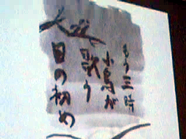 もう三時
小鳥が
歌う
目の初め